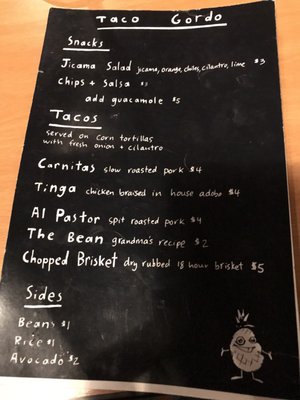 Taco Gordo
Snacks
Jicama Salad jicama, orange, chiles, cilantro, lime $3
Chips + Salsa
add guacamole $5
Tacos
served on corn tortillas
with fresh onion + cilantro
Carnitas slow roasted pork $4
Tinga chicken braised in house adobo $4
Al Pastor spit roasted pork $4
The Bean grandma's recipe $2
Chopped Brisket dry rubbed 18 hour brisket $5
Sides
Beans $1
Rice $1
Avocado $2